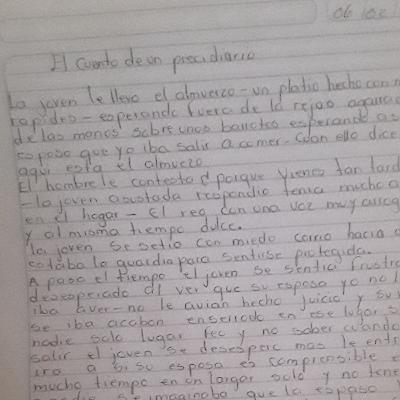 06/02/
El Cuento de un precidiario
La joven le llevo el almuerzo - un platio hecho con
rapides - esperando fuera de la rejas
de las manos sobre unos barrotes esperando a s
esposo que ya iba salir a comer. Cuan ello dice
aqui esta el almuerzo
El hombre le contesto d porque vienes tan tard
- la joven asustada respondio tenia mucho
en el hogar - El reo con una voz muy
y al misma tiempo dulce.
la joven se setio con miedo como hacia
estaba la guardia para sentirse protegida.
A paso el tiempo el joven se sentia frustra
desesperado al ver que su esposa ya no l
iba aver - no le avian hecho juicio y su
se iba acaban enserado en ese lugar s
nadie solo lugar feo y no saber cuando
salir el joven se desespero mas le entr
ira a si su esposa es comprensible
mucho tiempo en un largar solo y no tene
se imaginaba que la esposa